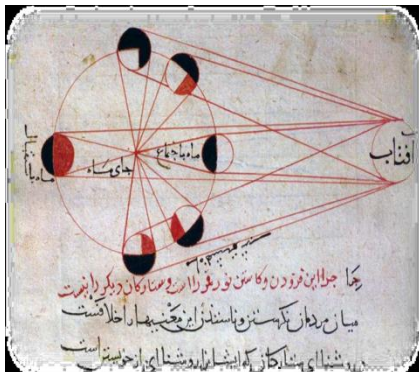 افتاب
ماه باجتماع
جای ماه
ماه باستقبال
چرا این فزودن و کاستن نور قمر راست و ستارکان دیکر را نیست
میان مردمان این اختلافست
روشنای ستارکان که ایشانرا روشنای از خویشتن است